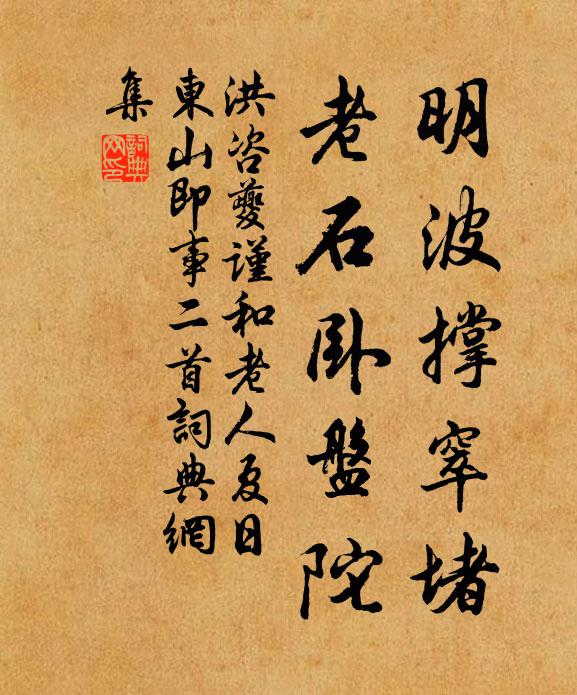 明波撑窣堵
老石卧盤陀
洪咨夔謹和老人夏日
東山即事二首詞典網
集
詞典網印